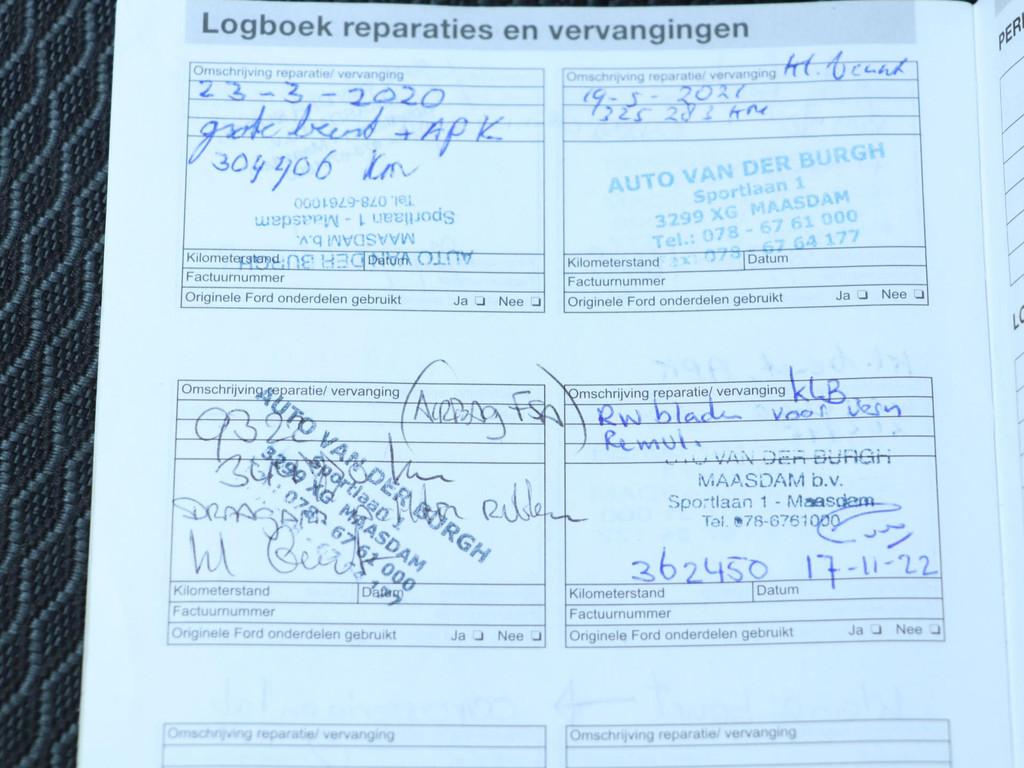 Logboek reparaties en vervangingen
Omschrijving reparatie/ vervanging
23-3-2020
grote beurt + APK
304406 km
AUTO VAN DER BURGH
MAASDAM b.v.
Sportlaan 1 - Maasdam
Tel. 078-6761000
Kilometerstand Datum
Factuurnummer
Originele Ford onderdelen gebruikt Ja Nee
Omschrijving reparatie/ vervanging kl. beurt
19-5-2021
325 283 km
AUTO VAN DER BURGH
Sportlaan 1
3299 XG MAASDAM
Tel.: 078 - 67 61 000
078 - 67 64 177
Kilometerstand Datum
Factuurnummer
Originele Ford onderdelen gebruikt Ja Nee
Omschrijving reparatie/ vervanging
(Airbag
km
AUTO VAN DER BURGH
Sportlaan 1
3299 XG MAASDAM
078 67 61 000
Kilometerstand Datum
Factuurnummer
Originele Ford onderdelen gebruikt Ja Nee
Omschrijving reparatie/ vervanging KLB
RW bladen voor vern
Remvl.
AUTO VAN DER BURGH
MAASDAM b.v.
Sportlaan 1 - Maasdam
Tel. 078-6761000
362450 17-11-22
Kilometerstand Datum
Factuurnummer
Originele Ford onderdelen gebruikt Ja Nee
Omschrijving reparatie/ vervanging
Omschrijving reparatie/ vervanging